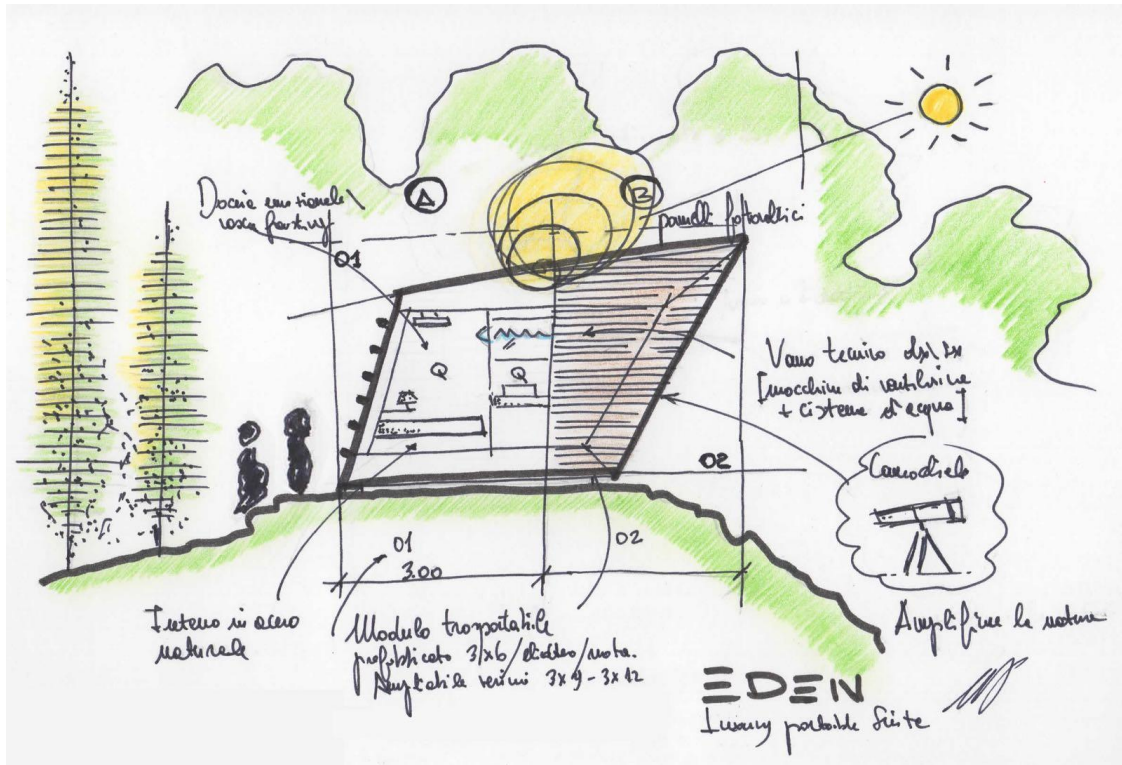 Doccia emozionale
A
B
pannelli fotovoltaici
01
Vano tecnico
[macchine di ventilazione
+ cisterna d'acqua]
02
Cannocchiale
01
02
3.00
Interno in acero
naturale
Modulo trasportabile
prefabbricato 3x6
Ampliabile 3x9 - 3x12
Amplificare la natura
EDEN
Luxury portable Suite